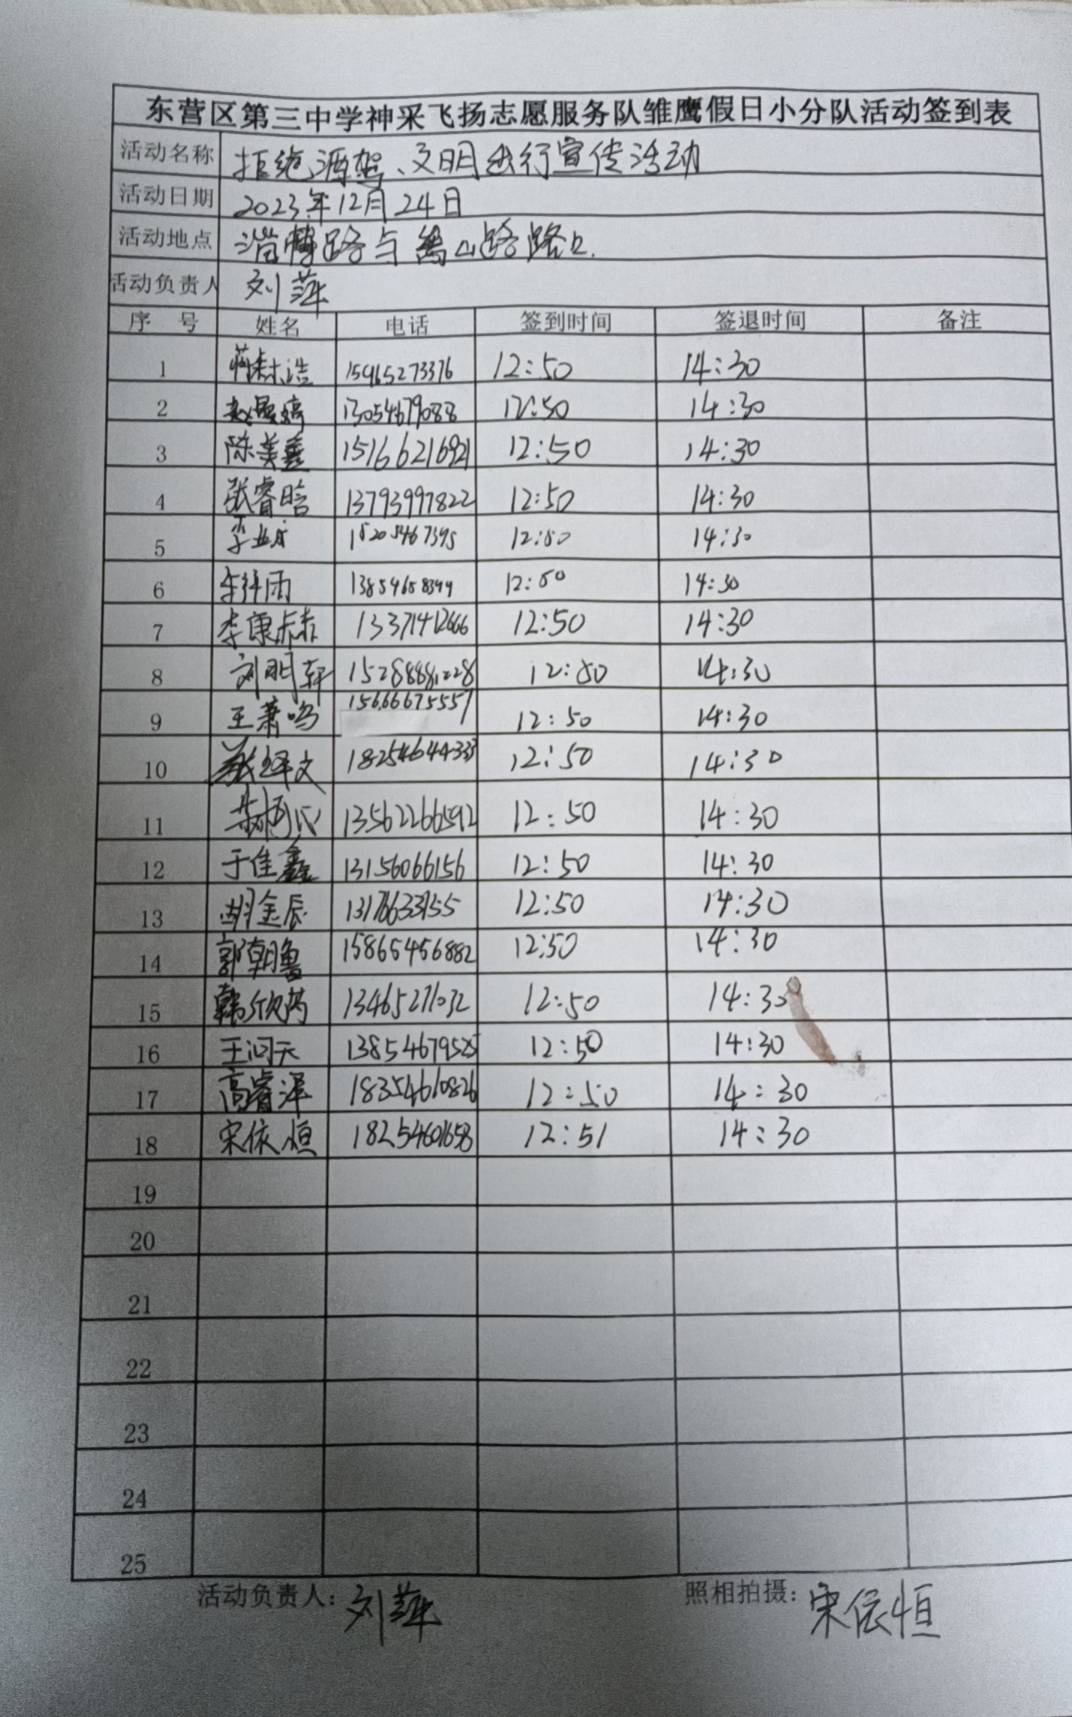 东营区第三中学神采飞扬志愿服务队雏鹰假日小分队活动签到表
活动名称 拒绝酒驾、文明出行宣传活动
活动日期 2023年12月24日
活动地点 淄博路与嵩山路路口.
活动负责人 刘萍
序 号 姓名 电话 签到时间 签退时间 备注
1 15965273376 12:50 14:30
2 13054679088 12:50 14:30
3 陈美鑫 15166216921 12:50 14:30
4 张睿晗 13793997822 12:50 14:30
5 15205467395 12:50 14:30
6 13854658399 12:50 14:30
7 李康 13371412666 12:50 14:30
8 刘明轩 15288881228 12:50 14:30
9 王萧鸣 15666675557 12:50 14:30
10 18254644333 12:50 14:30
11 13562266592 12:50 14:30
12 于佳鑫 13156066156 12:50 14:30
13 胡金辰 12:50 14:30
14 郭朝鲁 15865456882 12:50 14:30
15 韩欣芮 12:50 14:30
16 王问天 13854679525 12:50 14:30
17 高睿泽 18354610826 12:50 14:30
18 宋依恒 18254601658 12:51 14:30
19
20
21
22
23
24
25
活动负责人: 刘萍 照相拍摄: 宋依恒